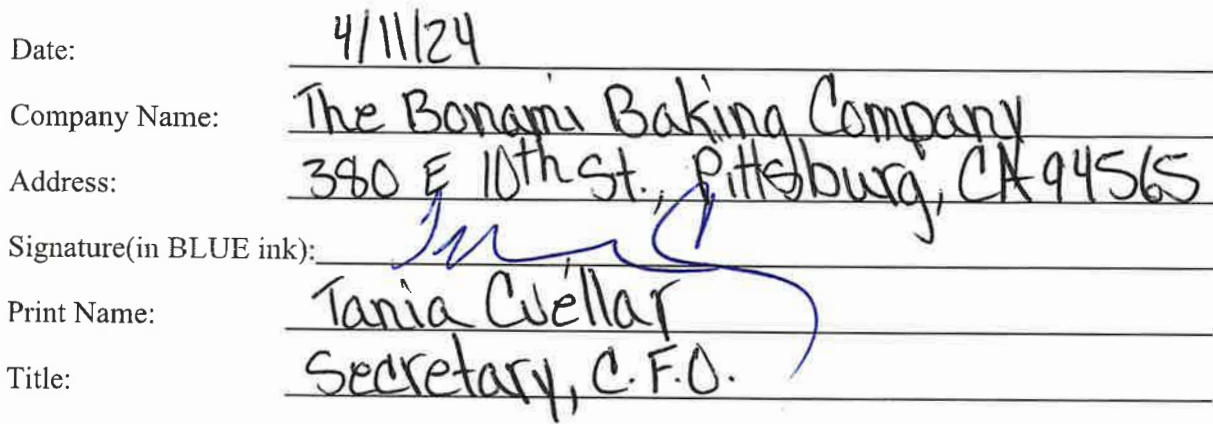 Date: 4/11/24
Company Name: The Bonami Baking Company
Address: 380 E 10th St., Pittsburg, CA 94565
Signature(in BLUE ink):
Print Name: Tania Cuéllar
Title: Secretary, C.F.O.